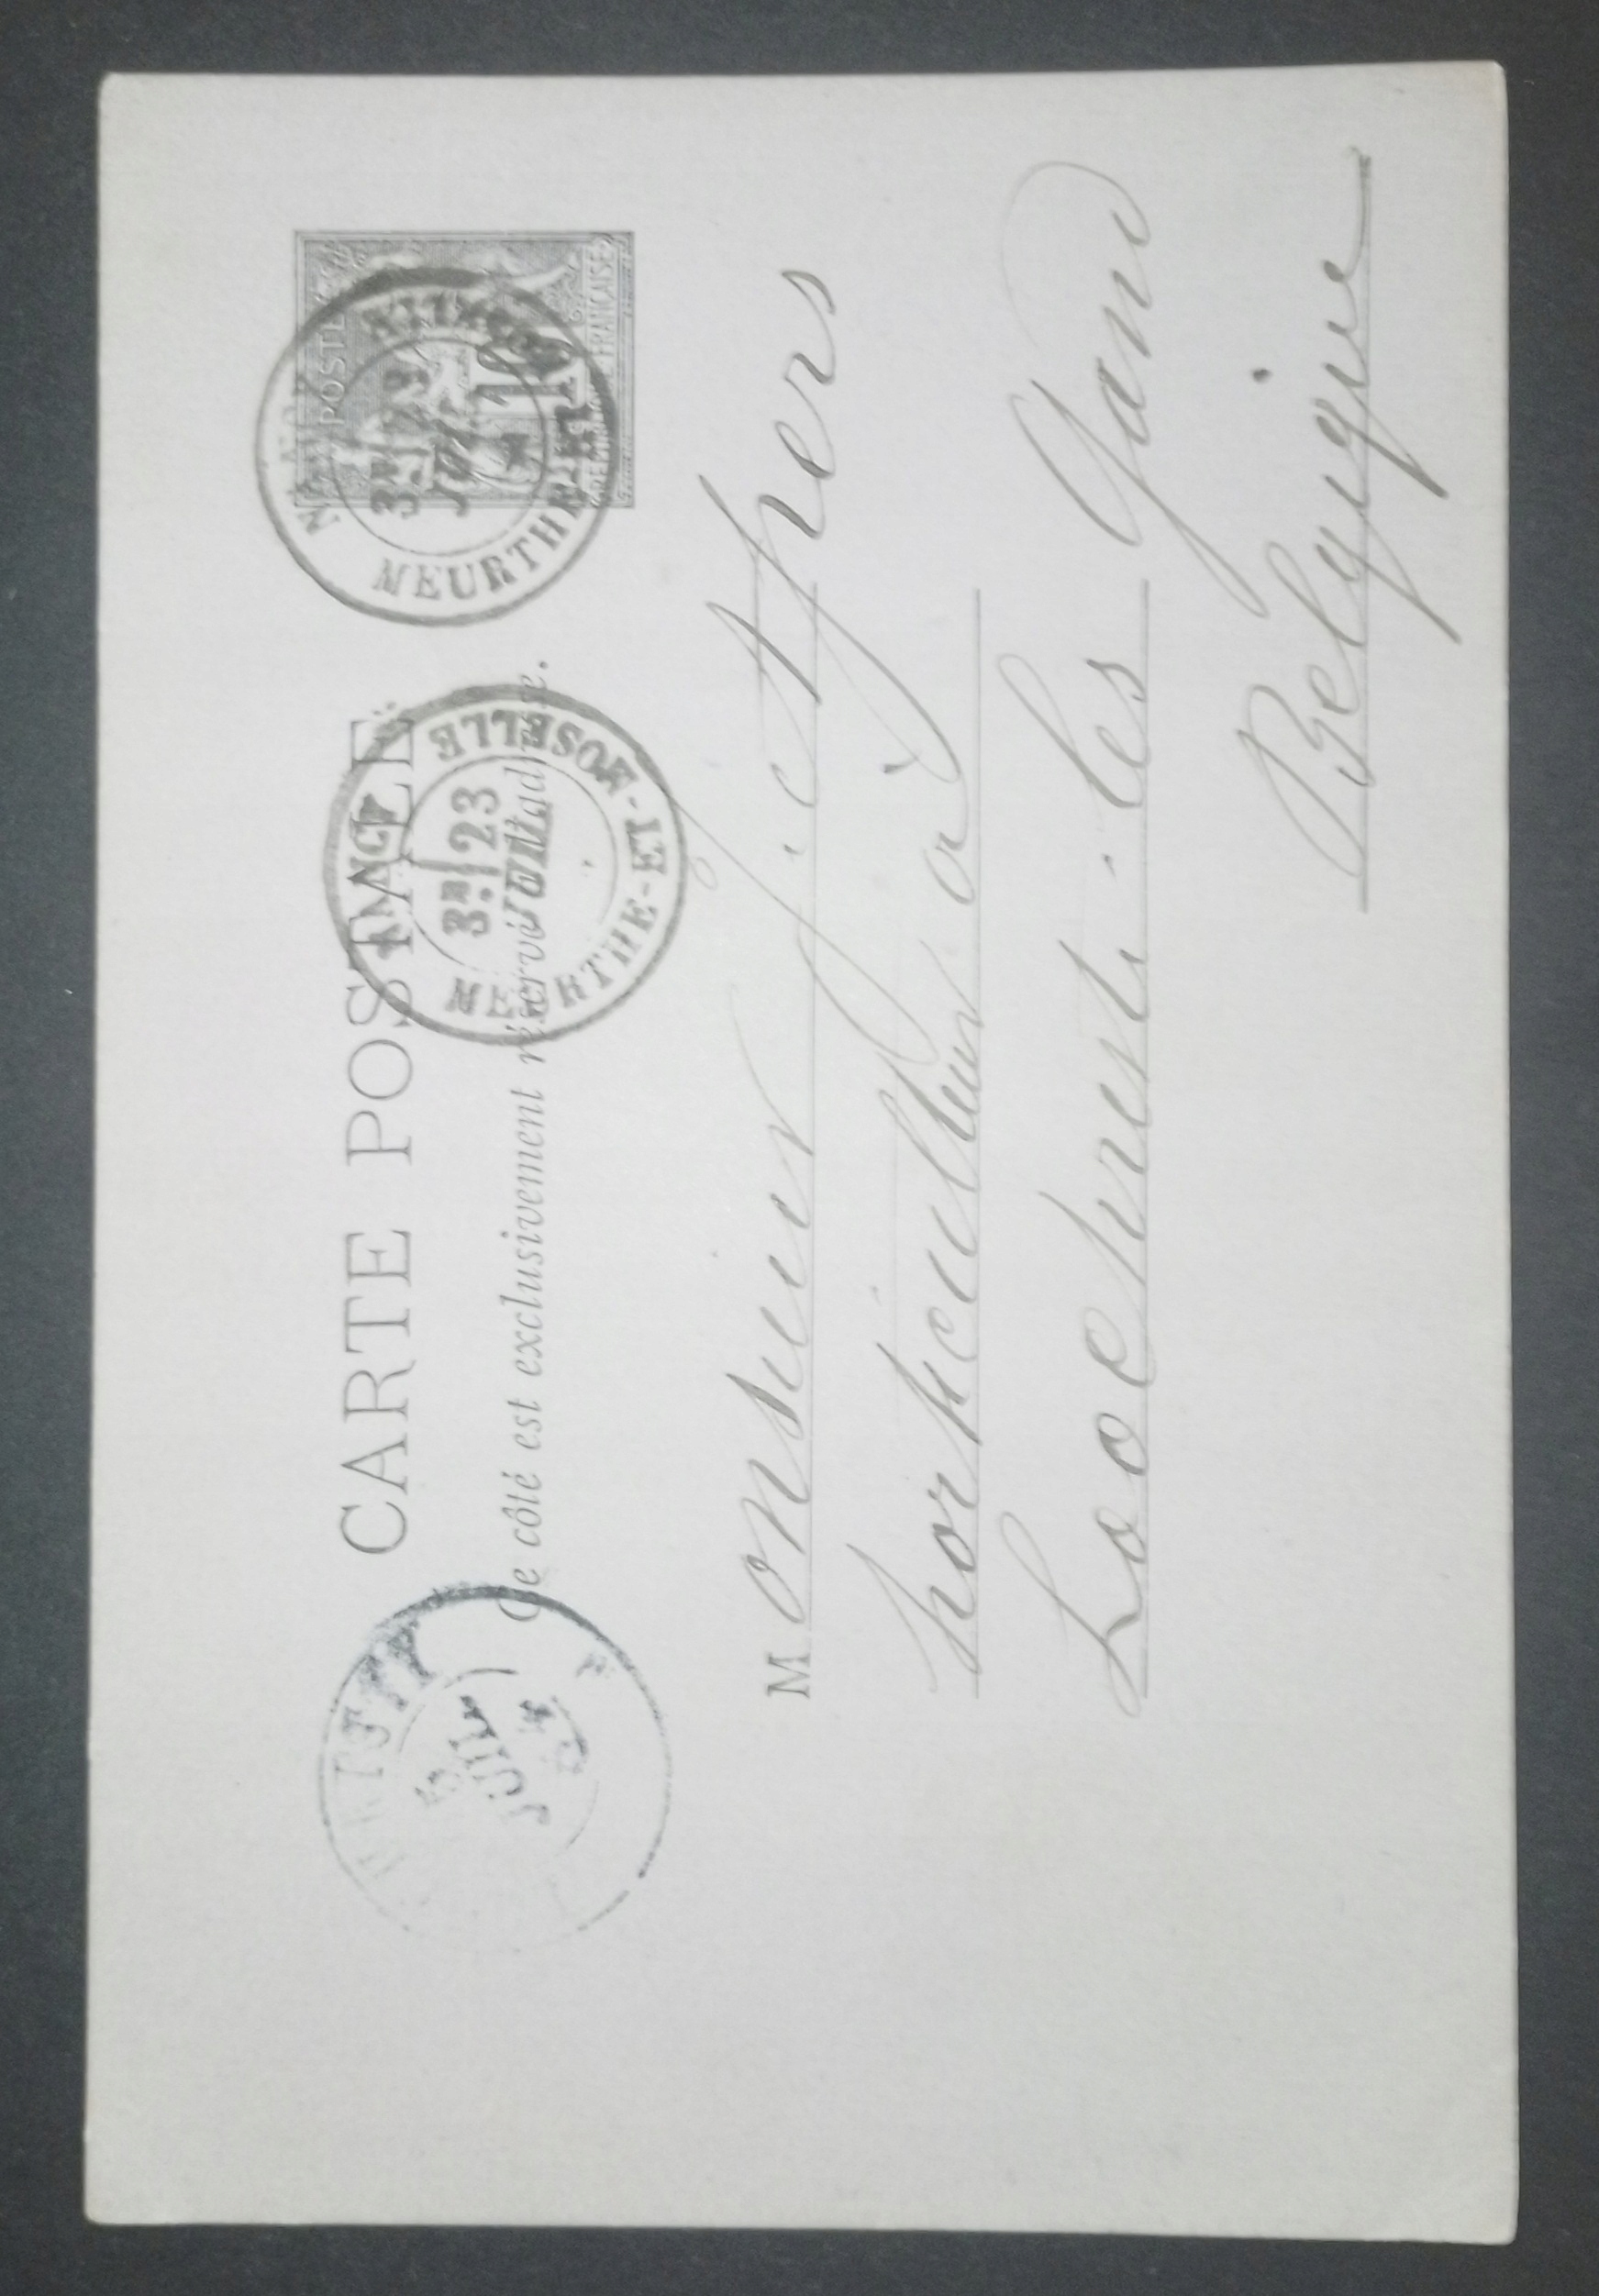 CARTE POSTALE
Ce côté est exclusivement réservé à l'adresse.
POSTE
10
REPUBLIQUE FRANÇAISE
NANCY
3E 23
JUIL
MEURTHE-ET-MOSELLE
NANCY
3E 23
JUIL
MEURTHE-ET-MOSELLE
JUIL
Monsieur
horticulteur à
Loochristi-les Gand
Belgique